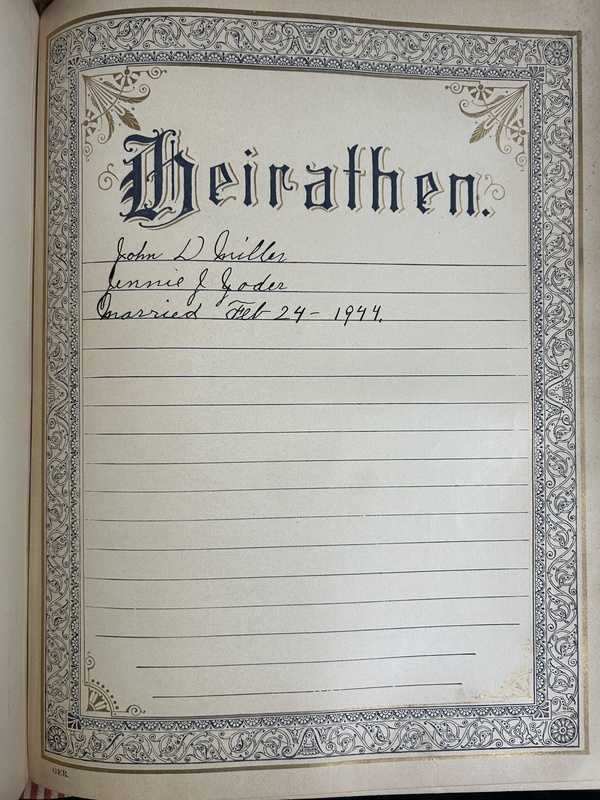 Heirathen.
John D Miller
Jennie J Yoder
Married Feb 24 - 1944.
GER.